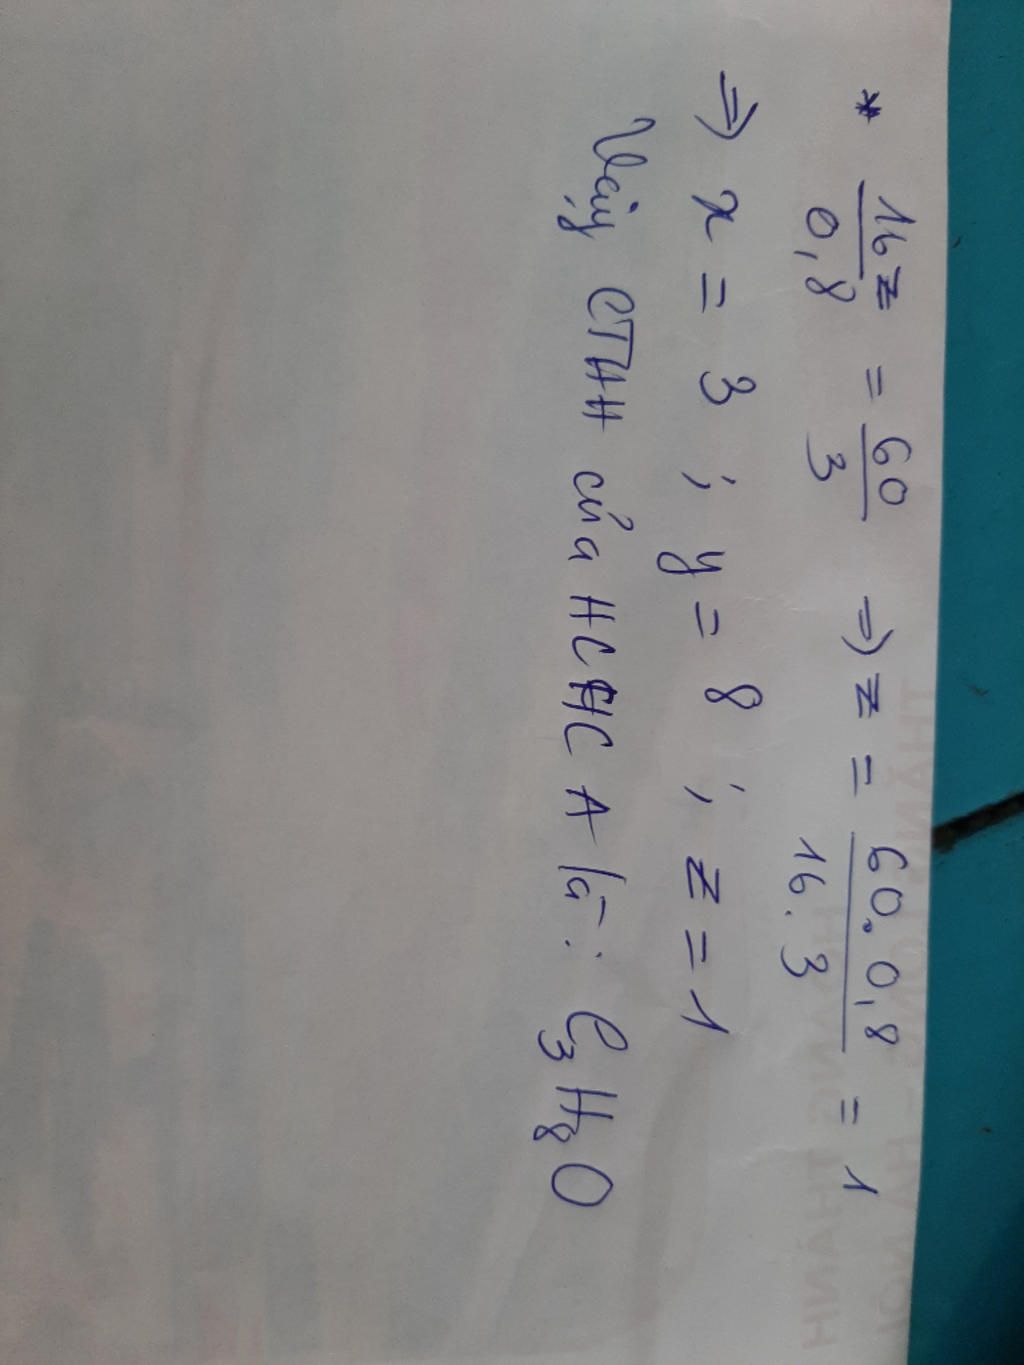 * 16z/0,8 = 60/3 => z = 60.0,8/16.3 = 1
=> x = 3 ; y = 8 ; z = 1
Vậy CTHH của HCHC A là: C₃H₈O